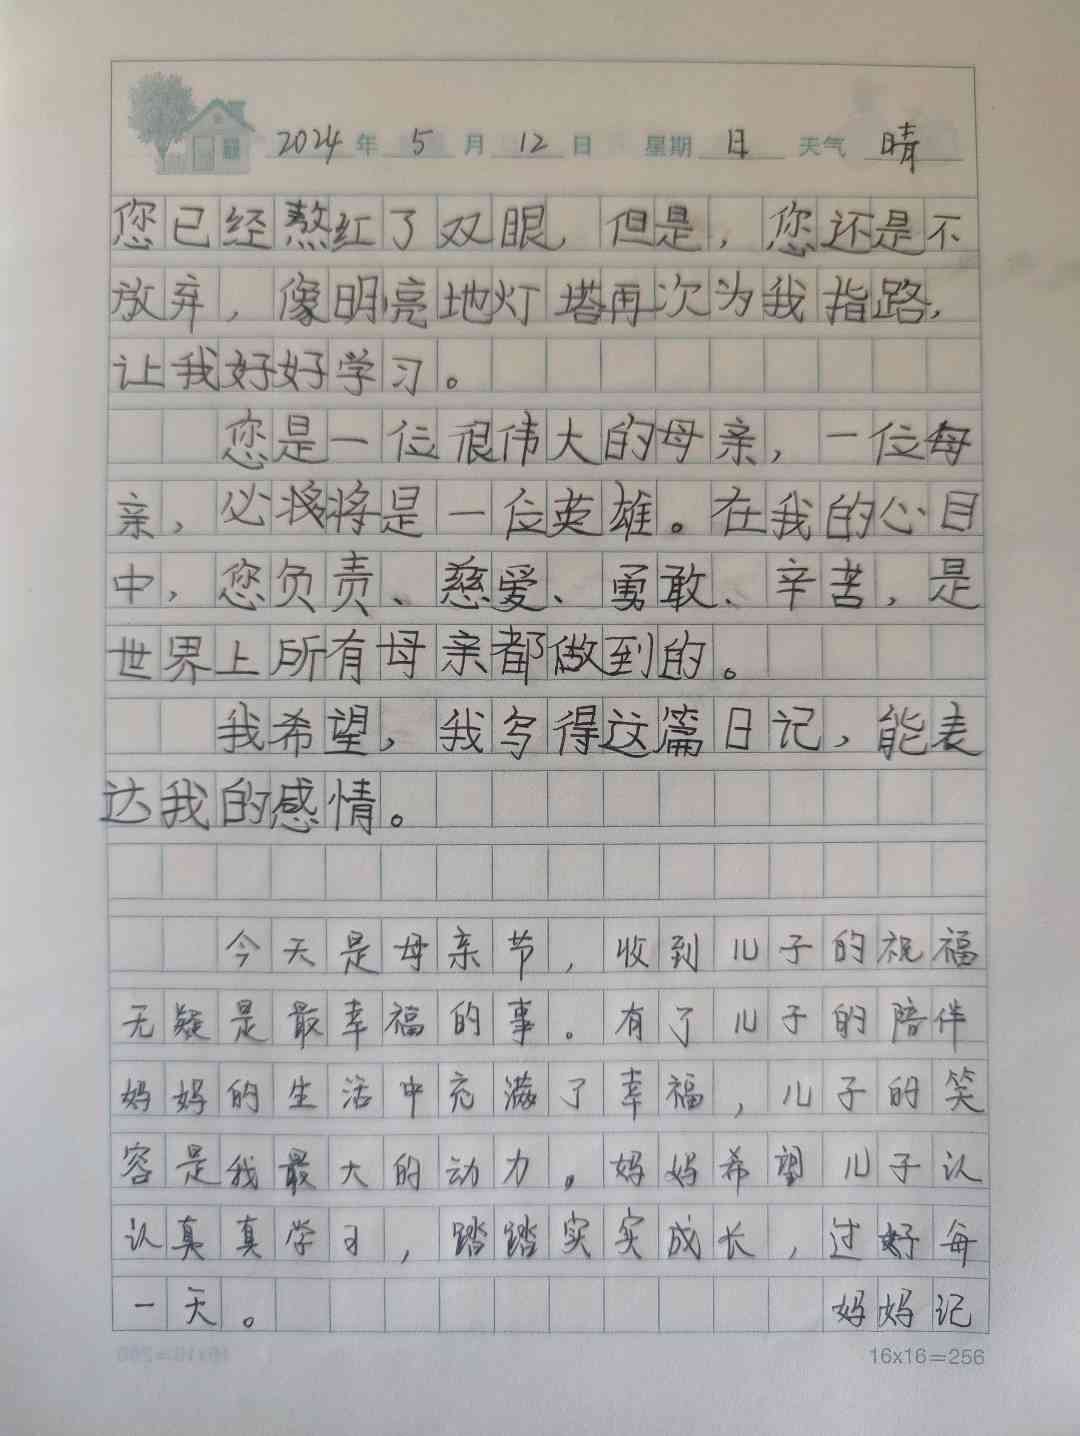 2024年5月12日 星期日 天气 晴
您已经熬红了双眼，但是，您还是不
放弃，像明亮地灯塔再次为我指路，
让我好好学习。
您是一位很伟大的母亲，一位母
亲，必将将是一位英雄。在我的心目
中，您负责、慈爱、勇敢、辛苦，是
世界上所有母亲都做到的。
我希望，我写得这篇日记，能表
达我的感情。
今天是母亲节，收到儿子的祝福
无疑是最幸福的事。有了儿子的陪伴
妈妈的生活中充满了幸福，儿子的笑
容是我最大的动力。妈妈希望儿子认
认真真学习，踏踏实实成长，过好每
一天。 妈妈记
16x16=256